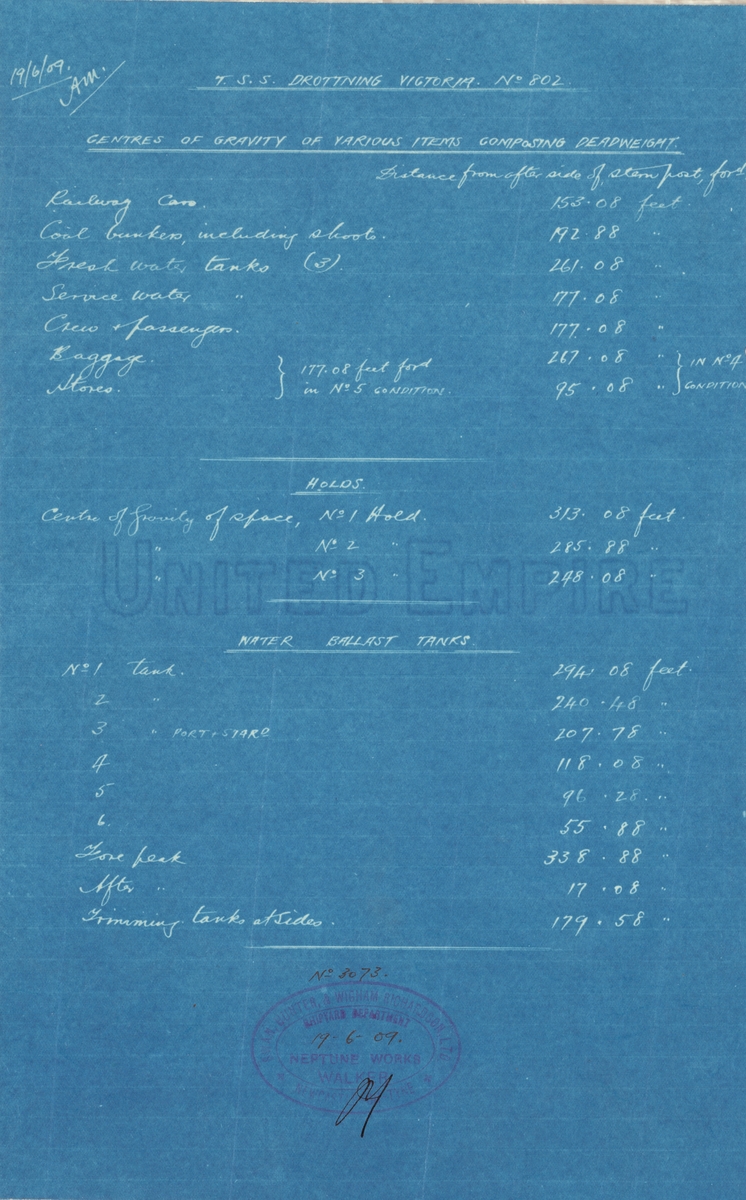 19/6/09.
AM.
T.S.S. DROTTNING VICTORIA. No 802.
CENTRES OF GRAVITY OF VARIOUS ITEMS COMPOSING DEADWEIGHT.
Distance from after side of stern post, ford
Railway Cars. 153.08 feet.
Coal bunkers, including shoots. 192.88 "
Fresh water tanks (3). 261.08 "
Service water " 177.08 "
Crew + passengers. 177.08 "
Baggage. 267.08 "
Stores. 95.08 "
} 177.08 feet ford in No 5 CONDITION.
} IN No 4 CONDITION
HOLDS.
Centre of Gravity of space, No 1 Hold. 313.08 feet.
" No 2 " 285.88 "
" No 3 " 248.08 "
UNITED EMPIRE
WATER BALLAST TANKS.
No 1 tank. 294.08 feet.
2 " 240.48 "
3 " PORT + STARD 207.78 "
4 118.08 "
5 96.28. "
6. 55.88 "
Fore peak 338.88 "
After " 17.08 "
Trimming tanks at sides. 179.58 "
No 3073.
SWAN, HUNTER, & WIGHAM RICHARDSON LTD
SHIPYARD DEPARTMENT
19-6-09.
NEPTUNE WORKS
WALKER